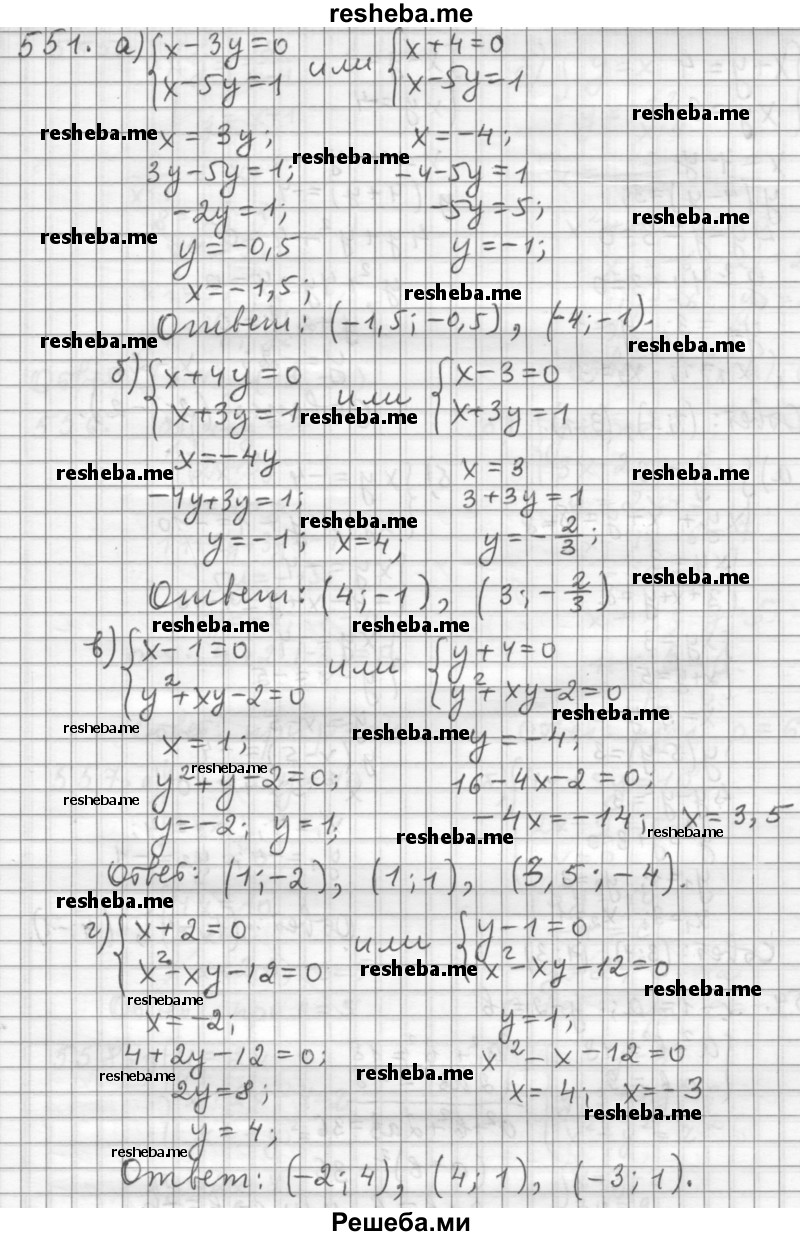 resheba.me
551. а) { x - 3y = 0 или { x + 4 = 0
x - 5y = 1 x - 5y = 1
resheba.me
resheba.me x = 3y; resheba.me x = -4;
3y - 5y = 1; -4 - 5y = 1
-2y = 1; -5y = 5; resheba.me
resheba.me y = -0,5 y = -1;
x = -1,5; resheba.me
Ответ: (-1,5; -0,5), (-4; -1).
resheba.me resheba.me
б) { x + 4y = 0 или { x - 3 = 0
x + 3y = 1 resheba.me x + 3y = 1
resheba.me x = -4y x = 3 resheba.me
-4y + 3y = 1; 3 + 3y = 1
resheba.me
y = -1; x = 4; y = -2/3;
resheba.me
Ответ: (4; -1), (3; -2/3)
resheba.me resheba.me
в) { x - 1 = 0 или { y + 4 = 0
y² + xy - 2 = 0 y² + xy - 2 = 0
resheba.me
resheba.me x = 1; resheba.me y = -4;
resheba.me
y² + y - 2 = 0; 16 - 4x - 2 = 0;
resheba.me
y = -2; y = 1; -4x = -14; x = 3,5
resheba.me resheba.me
Ответ: (1; -2), (1; 1), (3,5; -4).
resheba.me
г) { x + 2 = 0 или { y - 1 = 0
x² - xy - 12 = 0 resheba.me x² - xy - 12 = 0
resheba.me resheba.me
x = -2; y = 1;
4 + 2y - 12 = 0; x² - x - 12 = 0
resheba.me resheba.me
2y = 8; x = 4; x = -3
resheba.me
y = 4;
resheba.me
Ответ: (-2; 4), (4; 1), (-3; 1).
Решеба.ми